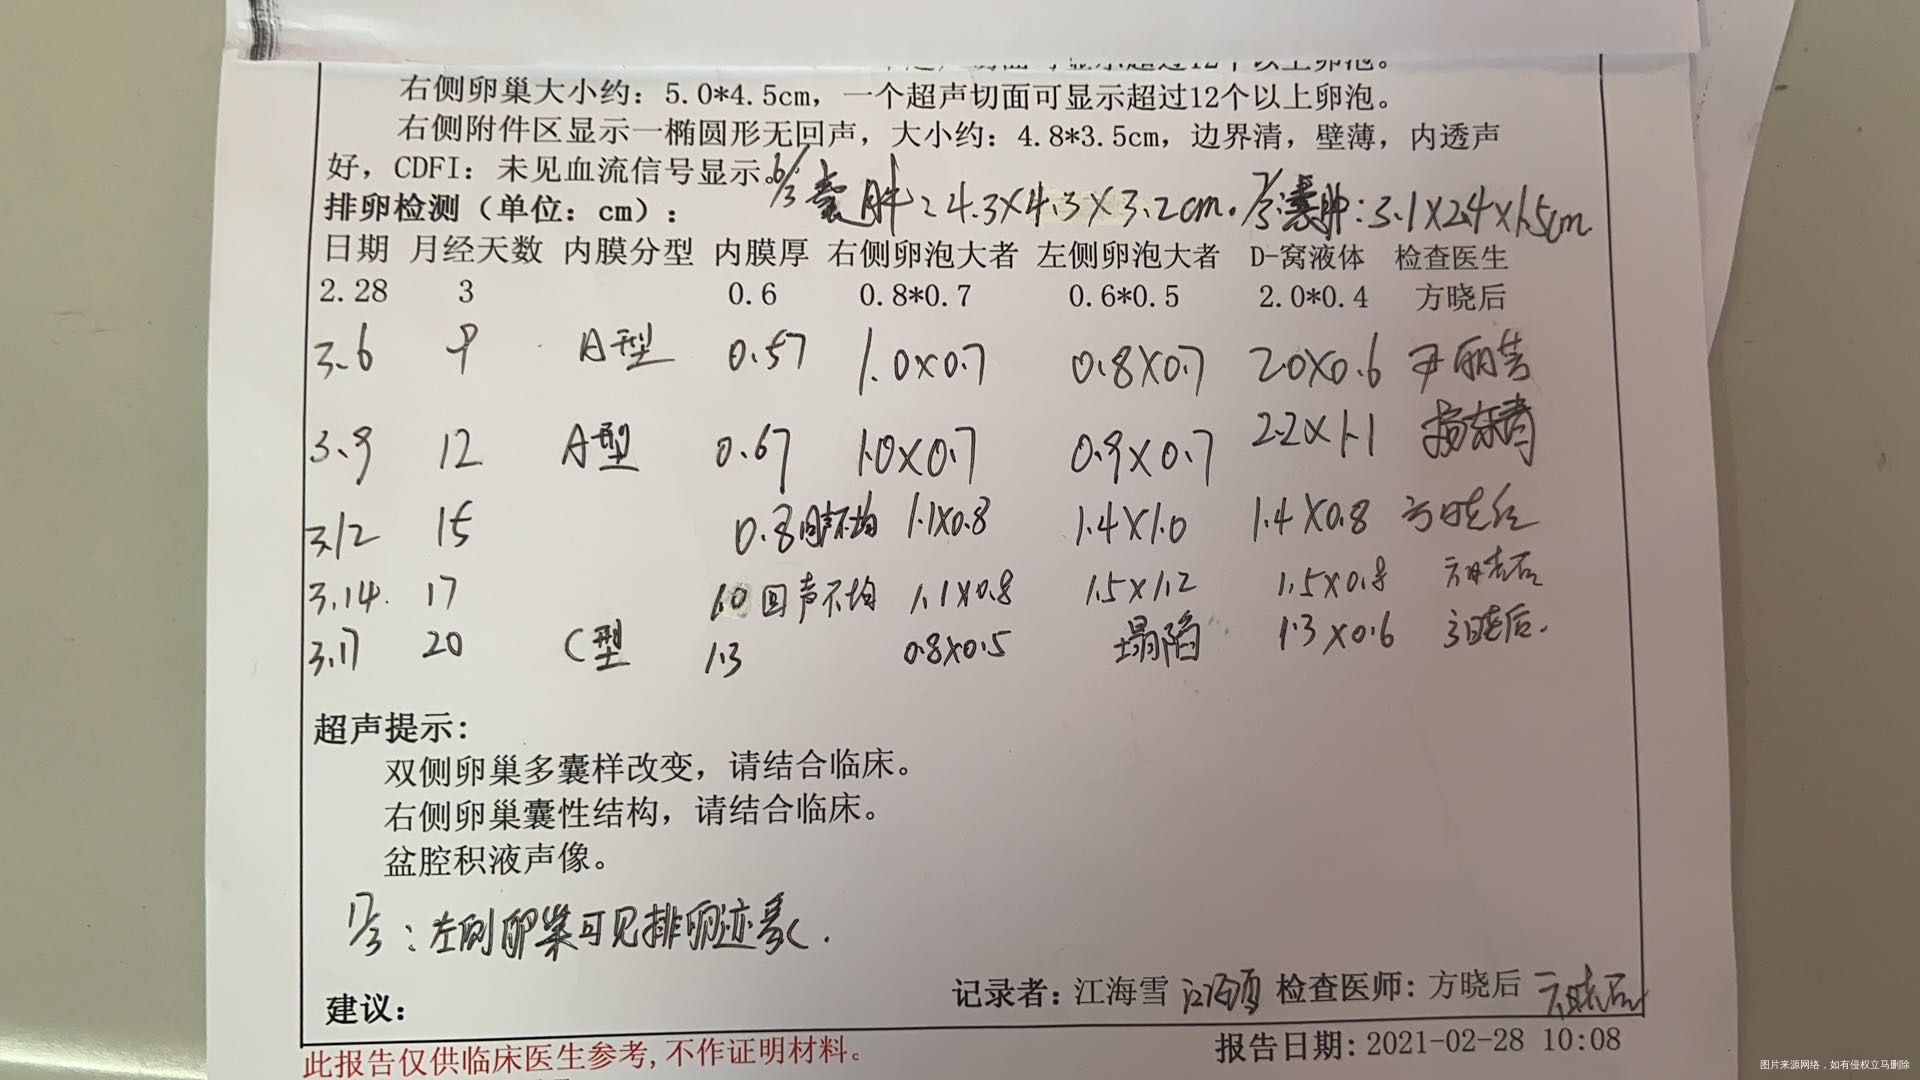 个超声切面可显示超过12个以上卵泡。
右侧卵巢大小约：5.0*4.5cm，一个超声切面可显示超过12个以上卵泡。
右侧附件区显示一椭圆形无回声，大小约：4.8*3.5cm，边界清，壁薄，内透声
好，CDFI：未见血流信号显示。
6/3囊肿：4.3X4.3X3.2cm. 17/3囊肿：3.1X2.4X1.5cm
排卵检测（单位：cm）：
日期 月经天数 内膜分型 内膜厚 右侧卵泡大者 左侧卵泡大者 D-窝液体 检查医生
2.28 3 0.6 0.8*0.7 0.6*0.5 2.0*0.4 方晓后
3.6 9 A型 0.57 1.0X0.7 0.8X0.7 2.0X0.6
3.9 12 A型 0.67 1.0X0.7 0.9X0.7 2.2X1.1
3.12 15 0.8回声不均 1.1X0.8 1.4X1.0 1.4X0.8 方晓后
3.14. 17 1.0回声不均 1.1X0.8 1.5X1.2 1.5X0.8 方晓后
3.17 20 C型 1.3 0.8X0.5 塌陷 1.3X0.6 方晓后.
超声提示：
双侧卵巢多囊样改变，请结合临床。
右侧卵巢囊性结构，请结合临床。
盆腔积液声像。
17/3：左侧卵巢可见排卵迹象.
记录者：江海雪 检查医师：方晓后 方晓后
建议：
此报告仅供临床医生参考,不作证明材料。
报告日期：2021-02-28 10:08
图片来源网络，如有侵权立马删除